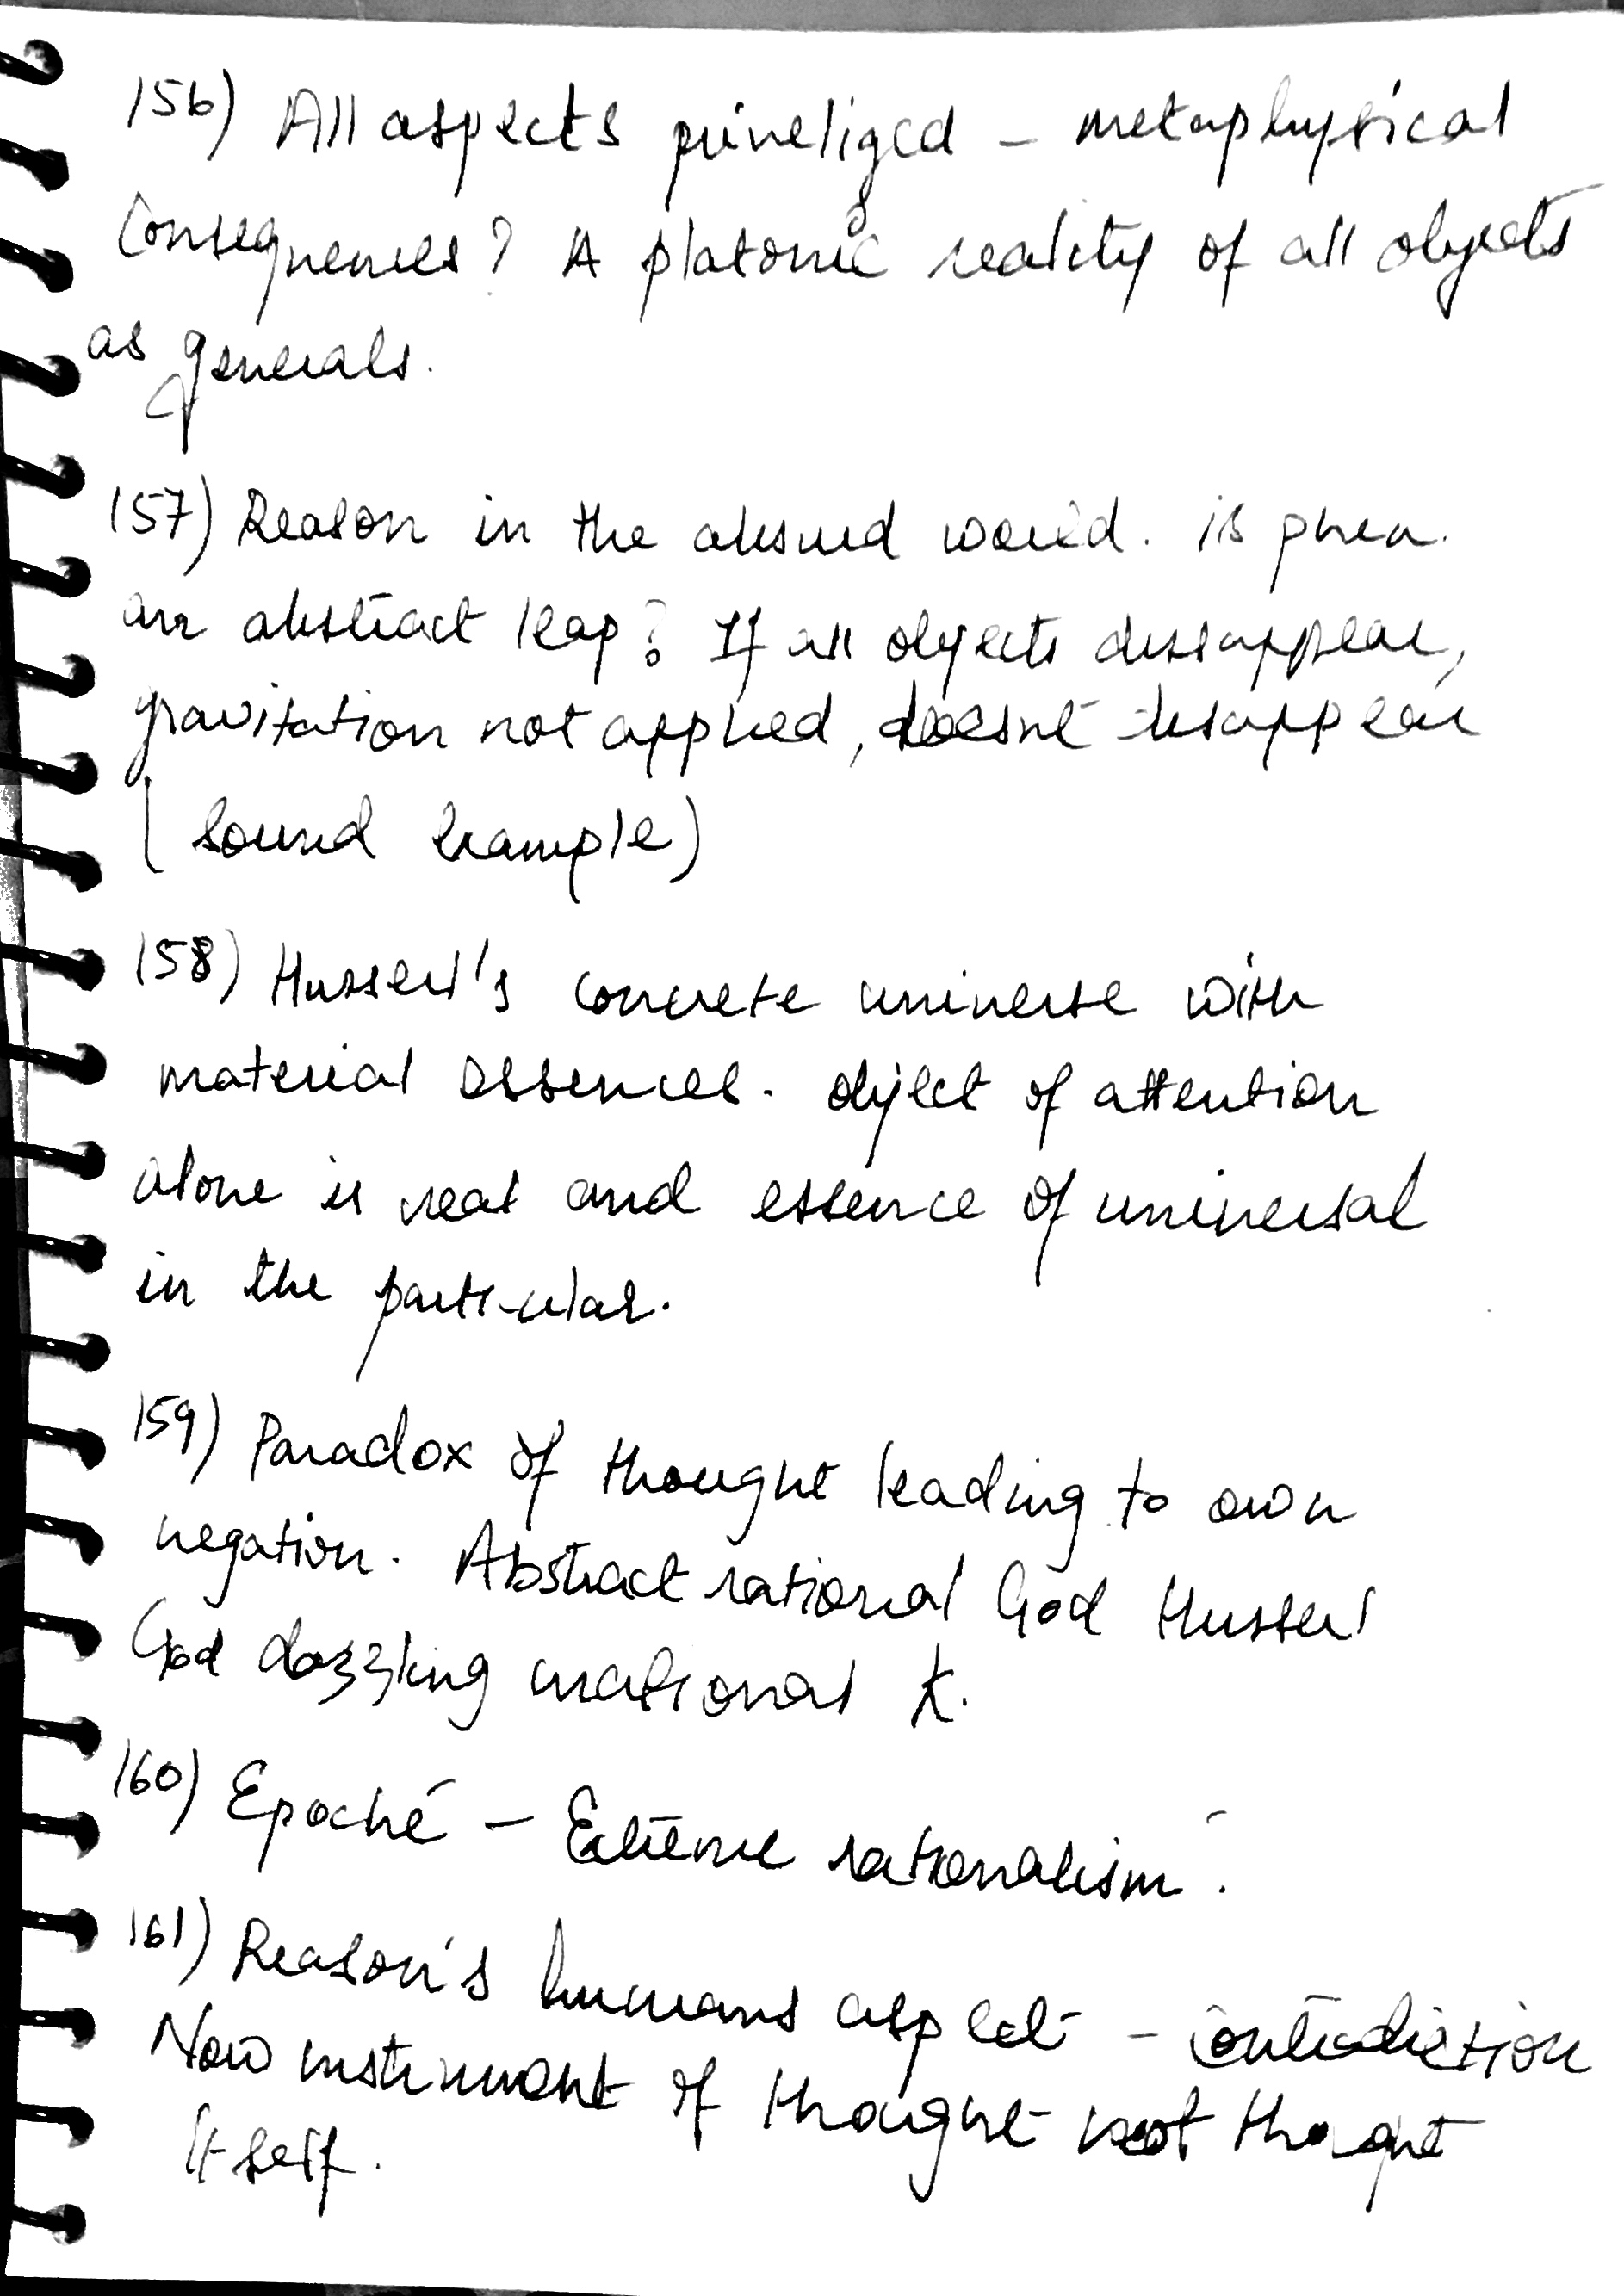 156) All aspects priveliged - metaphysical
Consequences? A platonic reality of all objects
as generals.
157) Reason in the absurd world. is phen.
an abstract leap? If all objects dissappear,
gravitation not applied, doesnt disappear
(sound example)
158) Husserl's concrete universe with
material essences. object of attention
alone is real and essence of universal
in the particular.
159) Paradox of thought leading to own
negation. Abstract rational God Husserl
God dazzling irrational K.
160) Epoché - Extreme rationalism.
161) Reason's humans aspect - contradiction
Now instrument of thought not thought
itself.